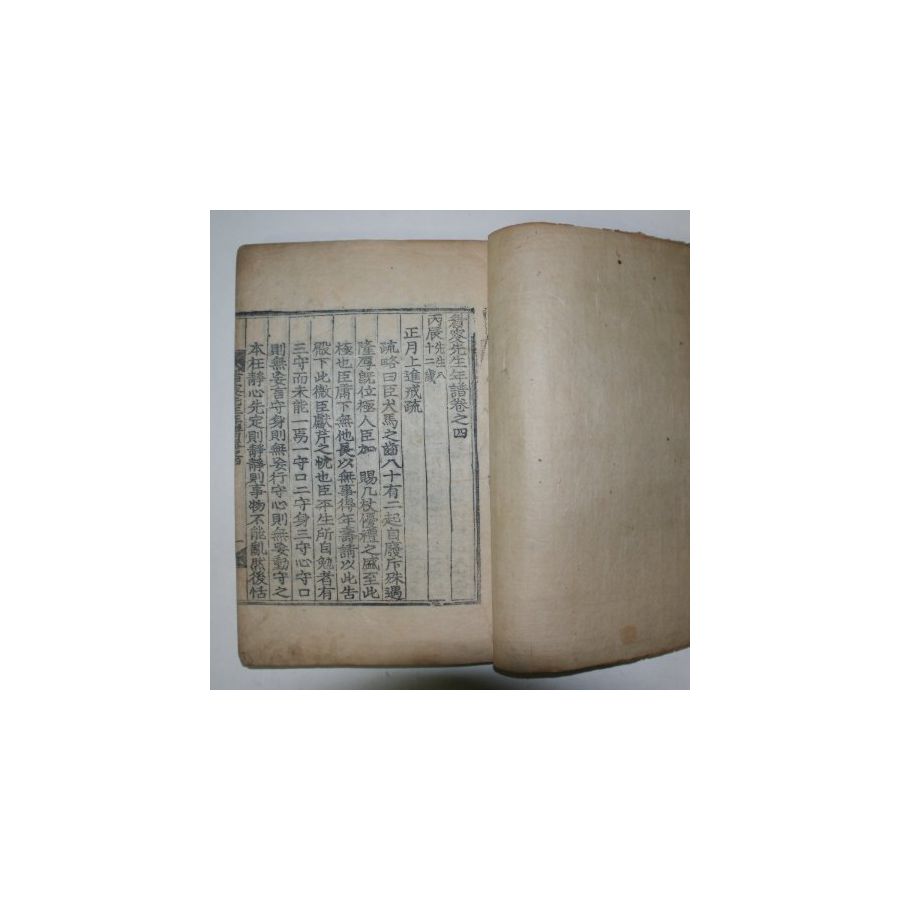 眉叟先生年譜卷之四
丙辰先生八十二歲
正月上進戒疏
疏略曰臣犬馬之齒八十有二起自廢斥殊遇
隆辱旣位極人臣加 賜几杖優禮之盛至此
極也臣庸下無他長以無事得年壽請以此告
殿下此微臣獻芹之忱也臣平生所自勉者有
三守而未能一焉一守口二守身三守心守口
則無妄言守身則無妄行守心則無妄動守之
本在靜心先定則靜靜則事物不能亂然後恬